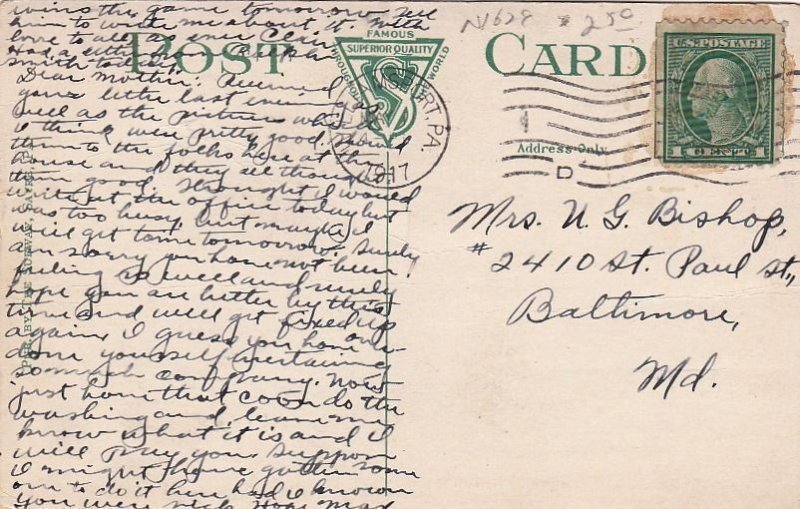 wins the game tomorrow. Tell
him to write me about it. With
love to all as ever
Had a letter
Smith today.
Dear Mother: Received
your letter last evening as
well as the pictures which
I think were pretty good. I showed
them to the folks here at the
house and they all thought
them good. Thought I would
write at the office today but
was too busy, but maybe I
will get to tomorrow. Surely
am sorry you have not been
feeling so well and surely
hope you are better by this
time and will get fixed up
again. I guess you have over-
done yourself entertaining
so much company. Now
just have that coon do the
washing and leave me
know what it is and I
will pay you. Suppose
I might have gotten some
one to do it here had I known
you were sick. Hope
POST CARD
FAMOUS
SUPERIOR QUALITY
THROUGHOUT THE WORLD
PA.
1917
D
N628 250
U.S. POSTAGE
1 CENT 1
Address Only
Mrs. U. G. Bishop,
#2410 St. Paul St.,
Baltimore,
Md.